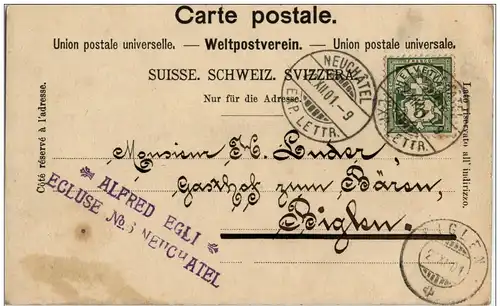 Carte postale.
Union postale universelle. — Weltpostverein. — Union postale universale.
SUISSE. SCHWEIZ. SVIZZERA.
Nur für die Adresse.
Côté réservé à l'adresse.
Lato riservato all' indirizzo.
NEUCHÂTEL
XII 01. – 9
EXP. LETTR.
HELVETIA
5
NEUCHÂTEL
LETTR.
Monsieur H. Luder,
Gasthof zum Bären,
Biglen.
* ALFRED EGLI *
ECLUSE No NEUCHATEL
BIGLEN